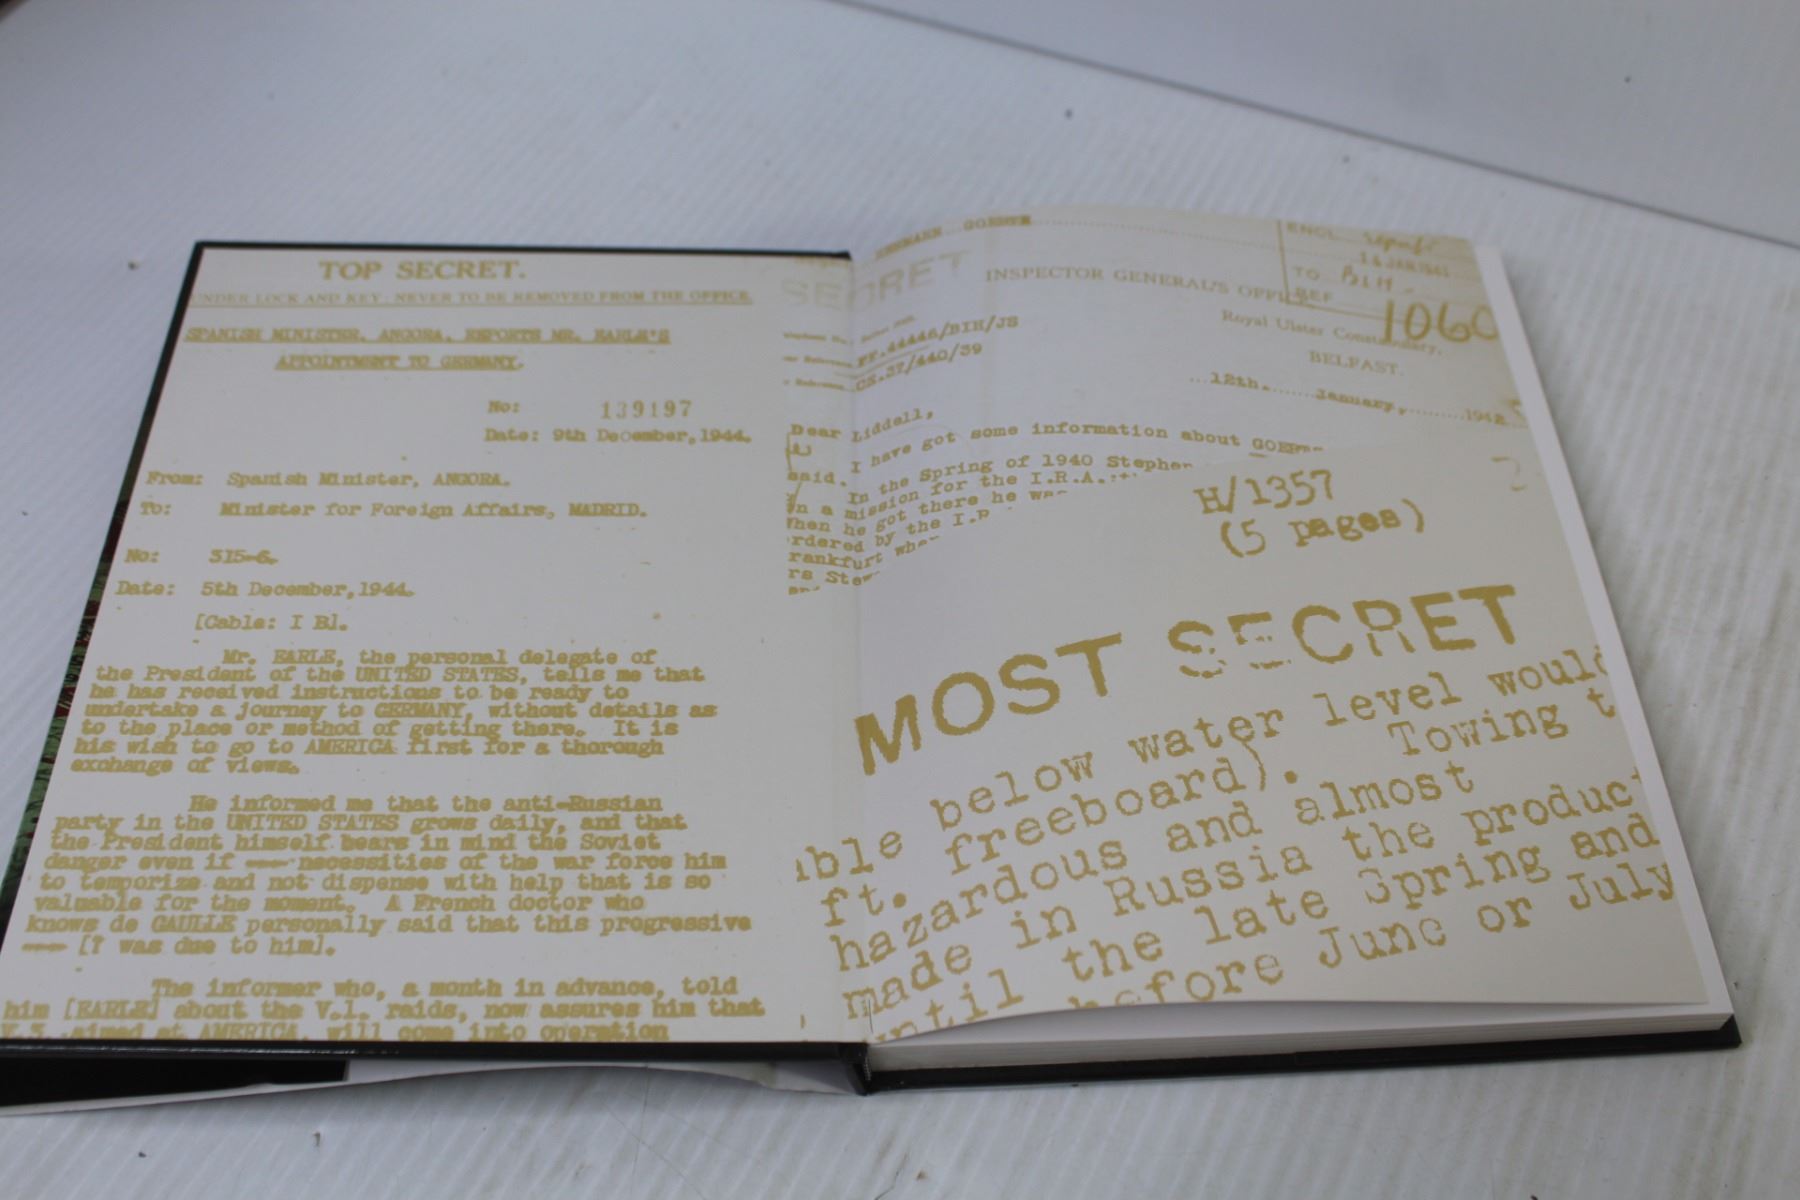 TOP SECRET.
UNDER LOCK AND KEY: NEVER TO BE REMOVED FROM THE OFFICE.
SPANISH MINISTER, ANGORA, REPORTS MR. EARLE'S
APPOINTMENT TO GERMANY.
No: 139197
Date: 9th December, 1944.
From: Spanish Minister, ANGORA.
To: Minister for Foreign Affairs, MADRID.
No: 315-6.
Date: 5th December, 1944.
[Cable: I B].
Mr. EARLE, the personal delegate of
the President of the UNITED STATES, tells me that
he has received instructions to be ready to
undertake a journey to GERMANY, without details as
to the place or method of getting there. It is
his wish to go to AMERICA first for a thorough
exchange of views.
He informed me that the anti-Russian
party in the UNITED STATES grows daily, and that
the President himself bears in mind the Soviet
danger even if ---- necessities of the war force him
to temporize and not dispense with help that is so
valuable for the moment. A French doctor who
knows de GAULLE personally said that this progressive
---- [? was due to him].
The informer who, a month in advance, told
him [EARLE] about the V.1. raids, now assures him that
aimed at AMERICA, will come into operation
SECRET
INSPECTOR GENERAL'S OFFICE
Royal Ulster Constabulary,
BELFAST.
TO BLH.
REF
1060
PF.44446/BIH/JS
CS.37/440/39
12th. January, 194
Dear Liddell,
I have got some information about
said.
In the Spring of 1940 Stephen
on a mission for the I.R.A.
When he got there he was
ordered by the I.R
rankfurt when
rs Stew
H/1357
(5 pages)
MOST SECRET
ble below water level would
ft. freeboard). Towing t
hazardous and almost
made in Russia the produc
until the late Spring and
before June or July